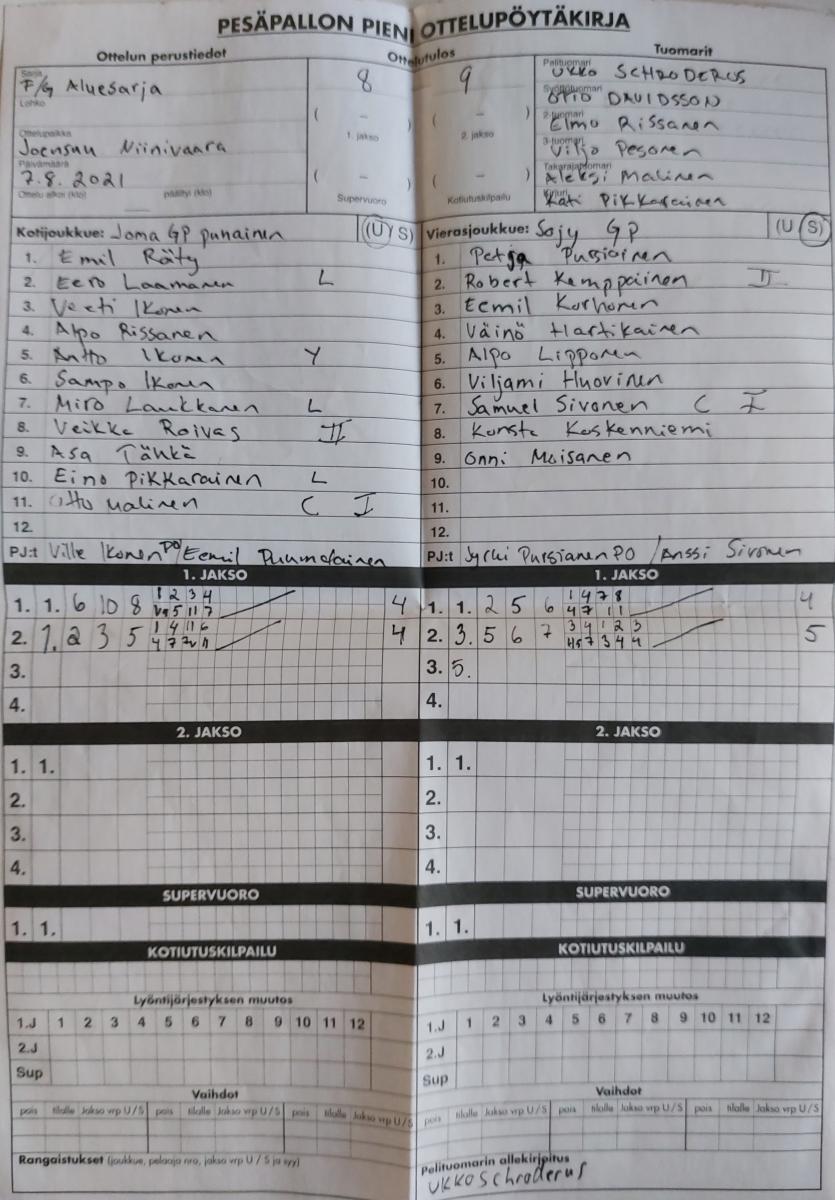 PESÄPALLON PIENI OTTELUPÖYTÄKIRJA
Ottelun perustiedot
Ottelutulos
Tuomarit
Sarja
F/G Aluesarja
Lohko
Ottelupaikka
Joensuu Niinivaara
Päivämäärä
7.8. 2021
Ottelu alkoi (klo) päättyi (klo)
8 9
( – ) ( – )
1. jakso 2. jakso
( – ) ( – )
Supervuoro Kotiutuskilpailu
Pelituomari
UKKO SCHRODERUS
Syöttötuomari
OTTO DAVIDSSON
2-tuomari
Elmo Rissanen
3-tuomari
Viljo Pesonen
Takarajatuomari
Aleksi Malinen
Kirjuri
Kati Pikkarainen
Kotijoukkue: Joma GP punainen (U / S)
1. Emil Räty
2. Eero Laamanen L
3. Veeti Ikonen
4. Alpo Rissanen
5. Antto Ikonen Y
6. Sampo Ikonen
7. Miro Laukkanen L
8. Veikka Roivas II
9. Asa Tähkä
10. Eino Pikkarainen L
11. Otto Malinen C I
12.
PJ:t Ville Ikonen PO / Eemil Puumalainen
Vierasjoukkue: SoJy GP (U / S)
1. Petja Pursiainen
2. Robert Kemppainen II
3. Eemil Korhonen
4. Väinö Hartikainen
5. Alpo Lipponen
6. Viljami Huovinen
7. Samuel Sivonen C I
8. Konsta Koskenniemi
9. Onni Moisanen
10.
11.
12.
PJ:t Jyrki Pursianen PO / Anssi Sivonen
1. JAKSO
1 2 3 4
1. 1. 6 10 8 5 11 7 4
1 4 11 6
2. 1. 2 3 5 4 7 11 4
3.
4.
1. JAKSO
1 4 7 8
1. 1. 2 5 6 4 7 11 4
3 4 1 2 3
2. 3. 5 6 7 7 3 4 4 5
3. 5.
4.
2. JAKSO
1. 1.
2.
3.
4.
2. JAKSO
1. 1.
2.
3.
4.
SUPERVUORO
1. 1.
SUPERVUORO
1. 1.
KOTIUTUSKILPAILU
KOTIUTUSKILPAILU
Lyöntijärjestyksen muutos
1.J 1 2 3 4 5 6 7 8 9 10 11 12
2.J
Sup
Lyöntijärjestyksen muutos
1.J 1 2 3 4 5 6 7 8 9 10 11 12
2.J
Sup
Vaihdot
pois tilalle Jakso vrp U / S pois tilalle Jakso vrp U / S pois tilalle Jakso vrp U / S
Vaihdot
pois tilalle Jakso vrp U / S pois tilalle Jakso vrp U / S pois tilalle Jakso vrp U / S
Rangaistukset (joukkue, pelaaja nro, jakso vrp U / S ja syy)
Pelituomarin allekirjoitus
UKKO Schroderus